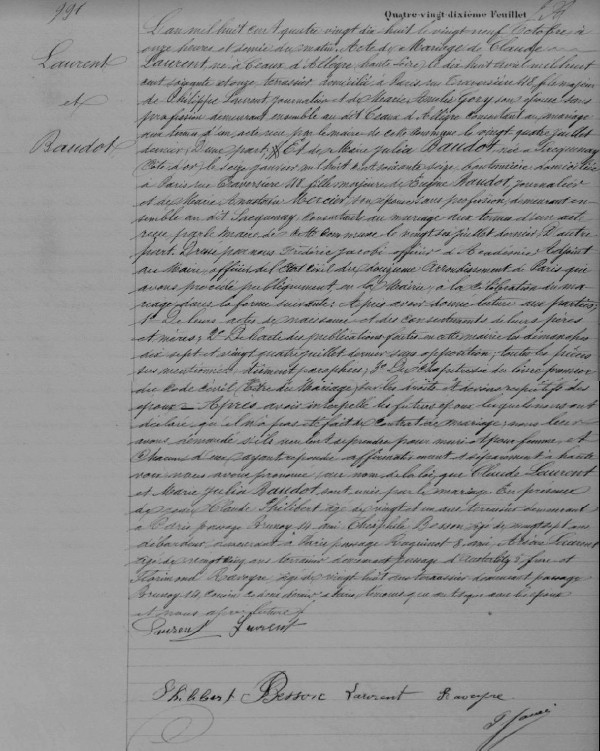 991
Quatre-vingt dixième Feuillet
Laurent
et
Baudot
L'an mil huit cent quatre vingt dix huit le vingt neuf Octobre à
onze heures et demie du matin, Acte de Mariage de Claude
Laurent, né à Ceaux d'Allègre (Haute Loire), le dix huit avril mil huit
cent soixante et onze, terrassier, domicilié à Paris rue Traversière 48, fils majeur
de Philippe Laurent, journalier et de Marie Amélie Gory son épouse sans
profession, demeurant ensemble au dit Ceaux d'Allègre Consentant au mariage
aux termes d'un acte reçu par le maire de cette commune le vingt quatre juillet
dernier, d'une part; Et de Marie Julia Baudot, née à
Côte d'or, le seize janvier mil huit cent soixante seize, domiciliée
à Paris rue Traversière 48 fille majeure de Eugène Baudot, journalier
et de Marie Anastasie Mercier, son épouse, sans profession, demeurant en-
semble au dit consentant au mariage aux termes d'un acte
reçu par le Maire de cette commune le vingt six juillet dernier; D'autre
part. Dressé par nous Frédéric Jacobi officier d'Académie Adjoint
au Maire, officier de l'Etat Civil du douzième Arrondissement de Paris qui
avons procédé publiquement en la Mairie, à la célébration du ma-
riage dans la forme suivante: Après avoir donné lecture aux parties,
1° De leurs actes de naissance et des consentements de leurs pères
et mères; 2° De l'acte des publications faites en cette mairie les dimanches
dix sept et vingt quatre juillet dernier sans opposition; toutes les pièces
sus mentionnées dûment paraphées; 3° Du Chapitre six du livre premier
du Code Civil, titre du Mariage, sur les droits et devoirs respectifs des
époux — Après avoir interpellé les futurs époux lesquels nous ont
déclaré qu'il n'a pas été fait de Contrat de mariage, nous leur
avons demandé s'ils veulent se prendre pour mari et pour femme, et
chacun d'eux ayant répondu affirmativement et séparément à haute
voix, nous avons prononcé au nom de la loi, que Claude Laurent
et Marie Julia Baudot, sont unis par le mariage. En présence
de Claude Philibert âgé de vingt et un ans terrassier demeurant
à Paris passage Brunoy 14, ami; Théophile Besson âgé de vingt sept ans
débardeur, demeurant à Paris passage Raguinot 8, ami; Laurent
âgé de vingt cinq ans terrassier demeurant passage d'Austerlitz 8, frère et
Florimond Ravoyre âgé de vingt huit ans terrassier demeurant passage
Brunoy 14, témoins qui ont signé avec les époux
et nous après lecture
Laurent Laurent
Philibert Besson Laurent Ravoyre